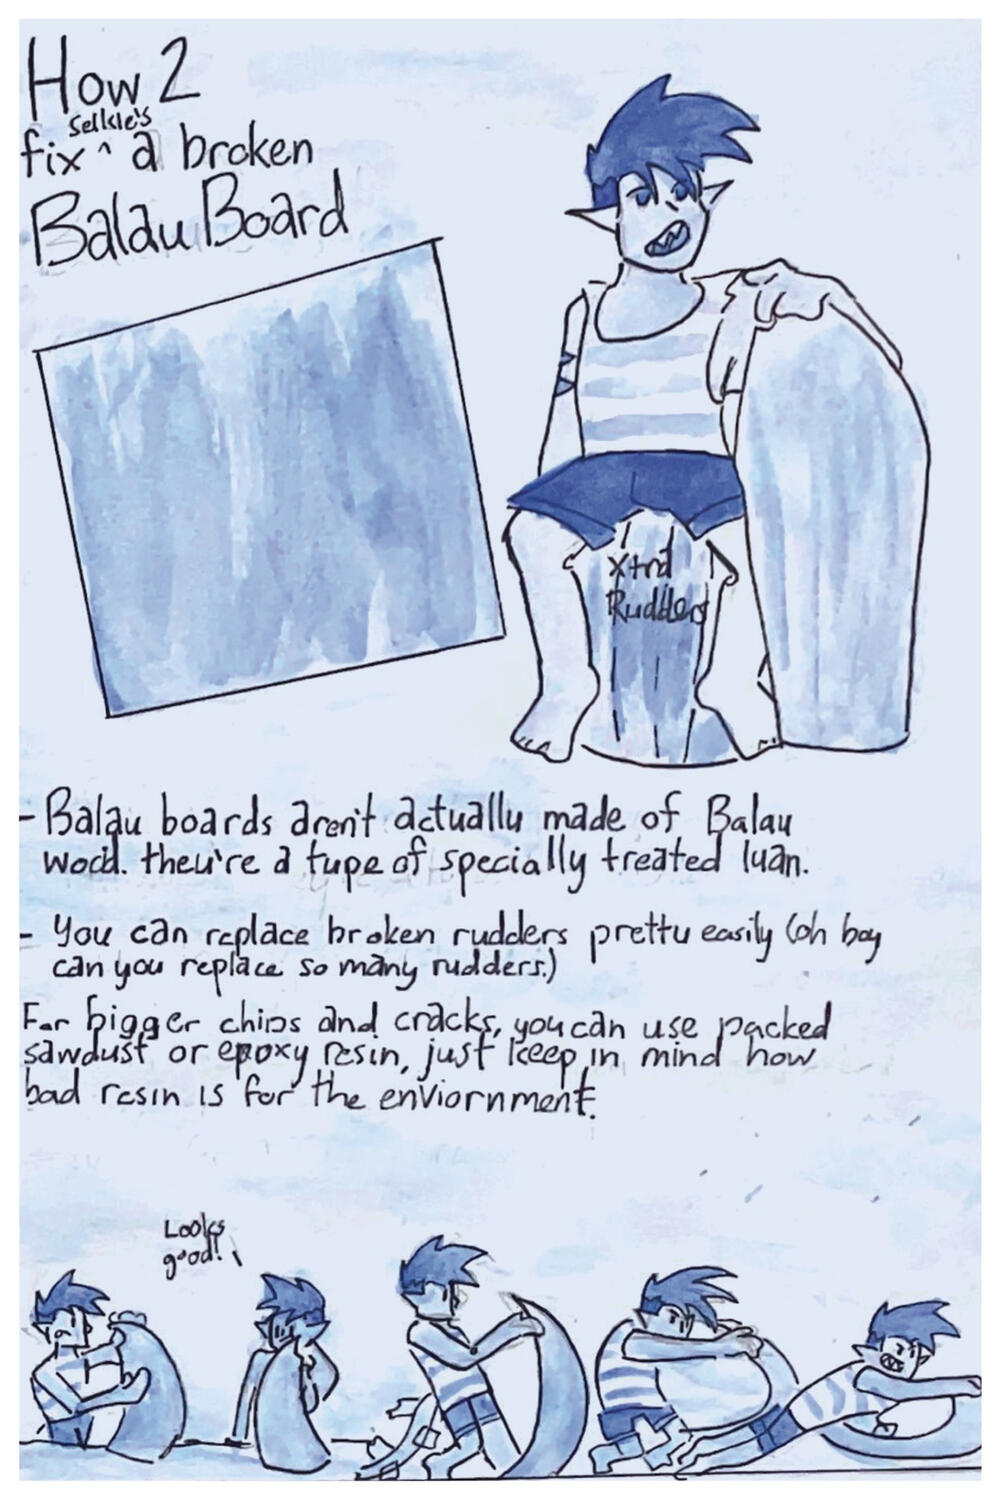 How 2
selkie's
fix ^ a broken
Balau Board
Xtra
Rudders
- Balau boards aren't actually made of Balau
wood. they're a type of specially treated luan.
- You can replace broken rudders pretty easily (oh boy
can you replace so many rudders.)
For bigger chips and cracks, you can use packed
sawdust or epoxy resin, just keep in mind how
bad resin is for the enviornment.
Looks
good!